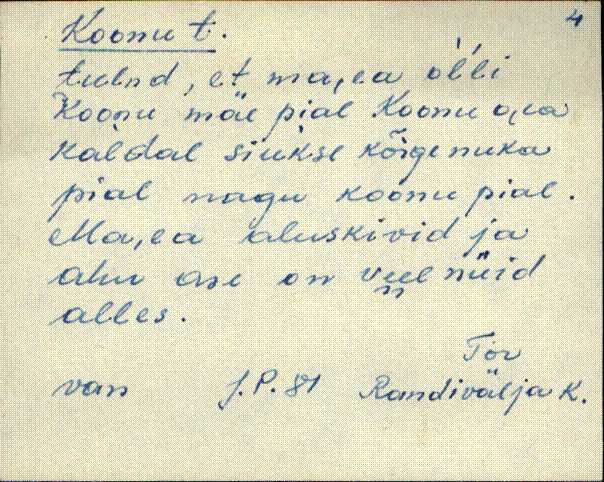 4
Koonu t.
tulnd, et ma,ea ol'l'i
Koonu mäe pial Koonu o,ja
kaldal siukse kõrge nuka
pial nagu koonu pial.
Ma,ea aluskivid ja
ahu ase on veel nüid
alles.
Tor
van J.P. 81 Randivälja K.